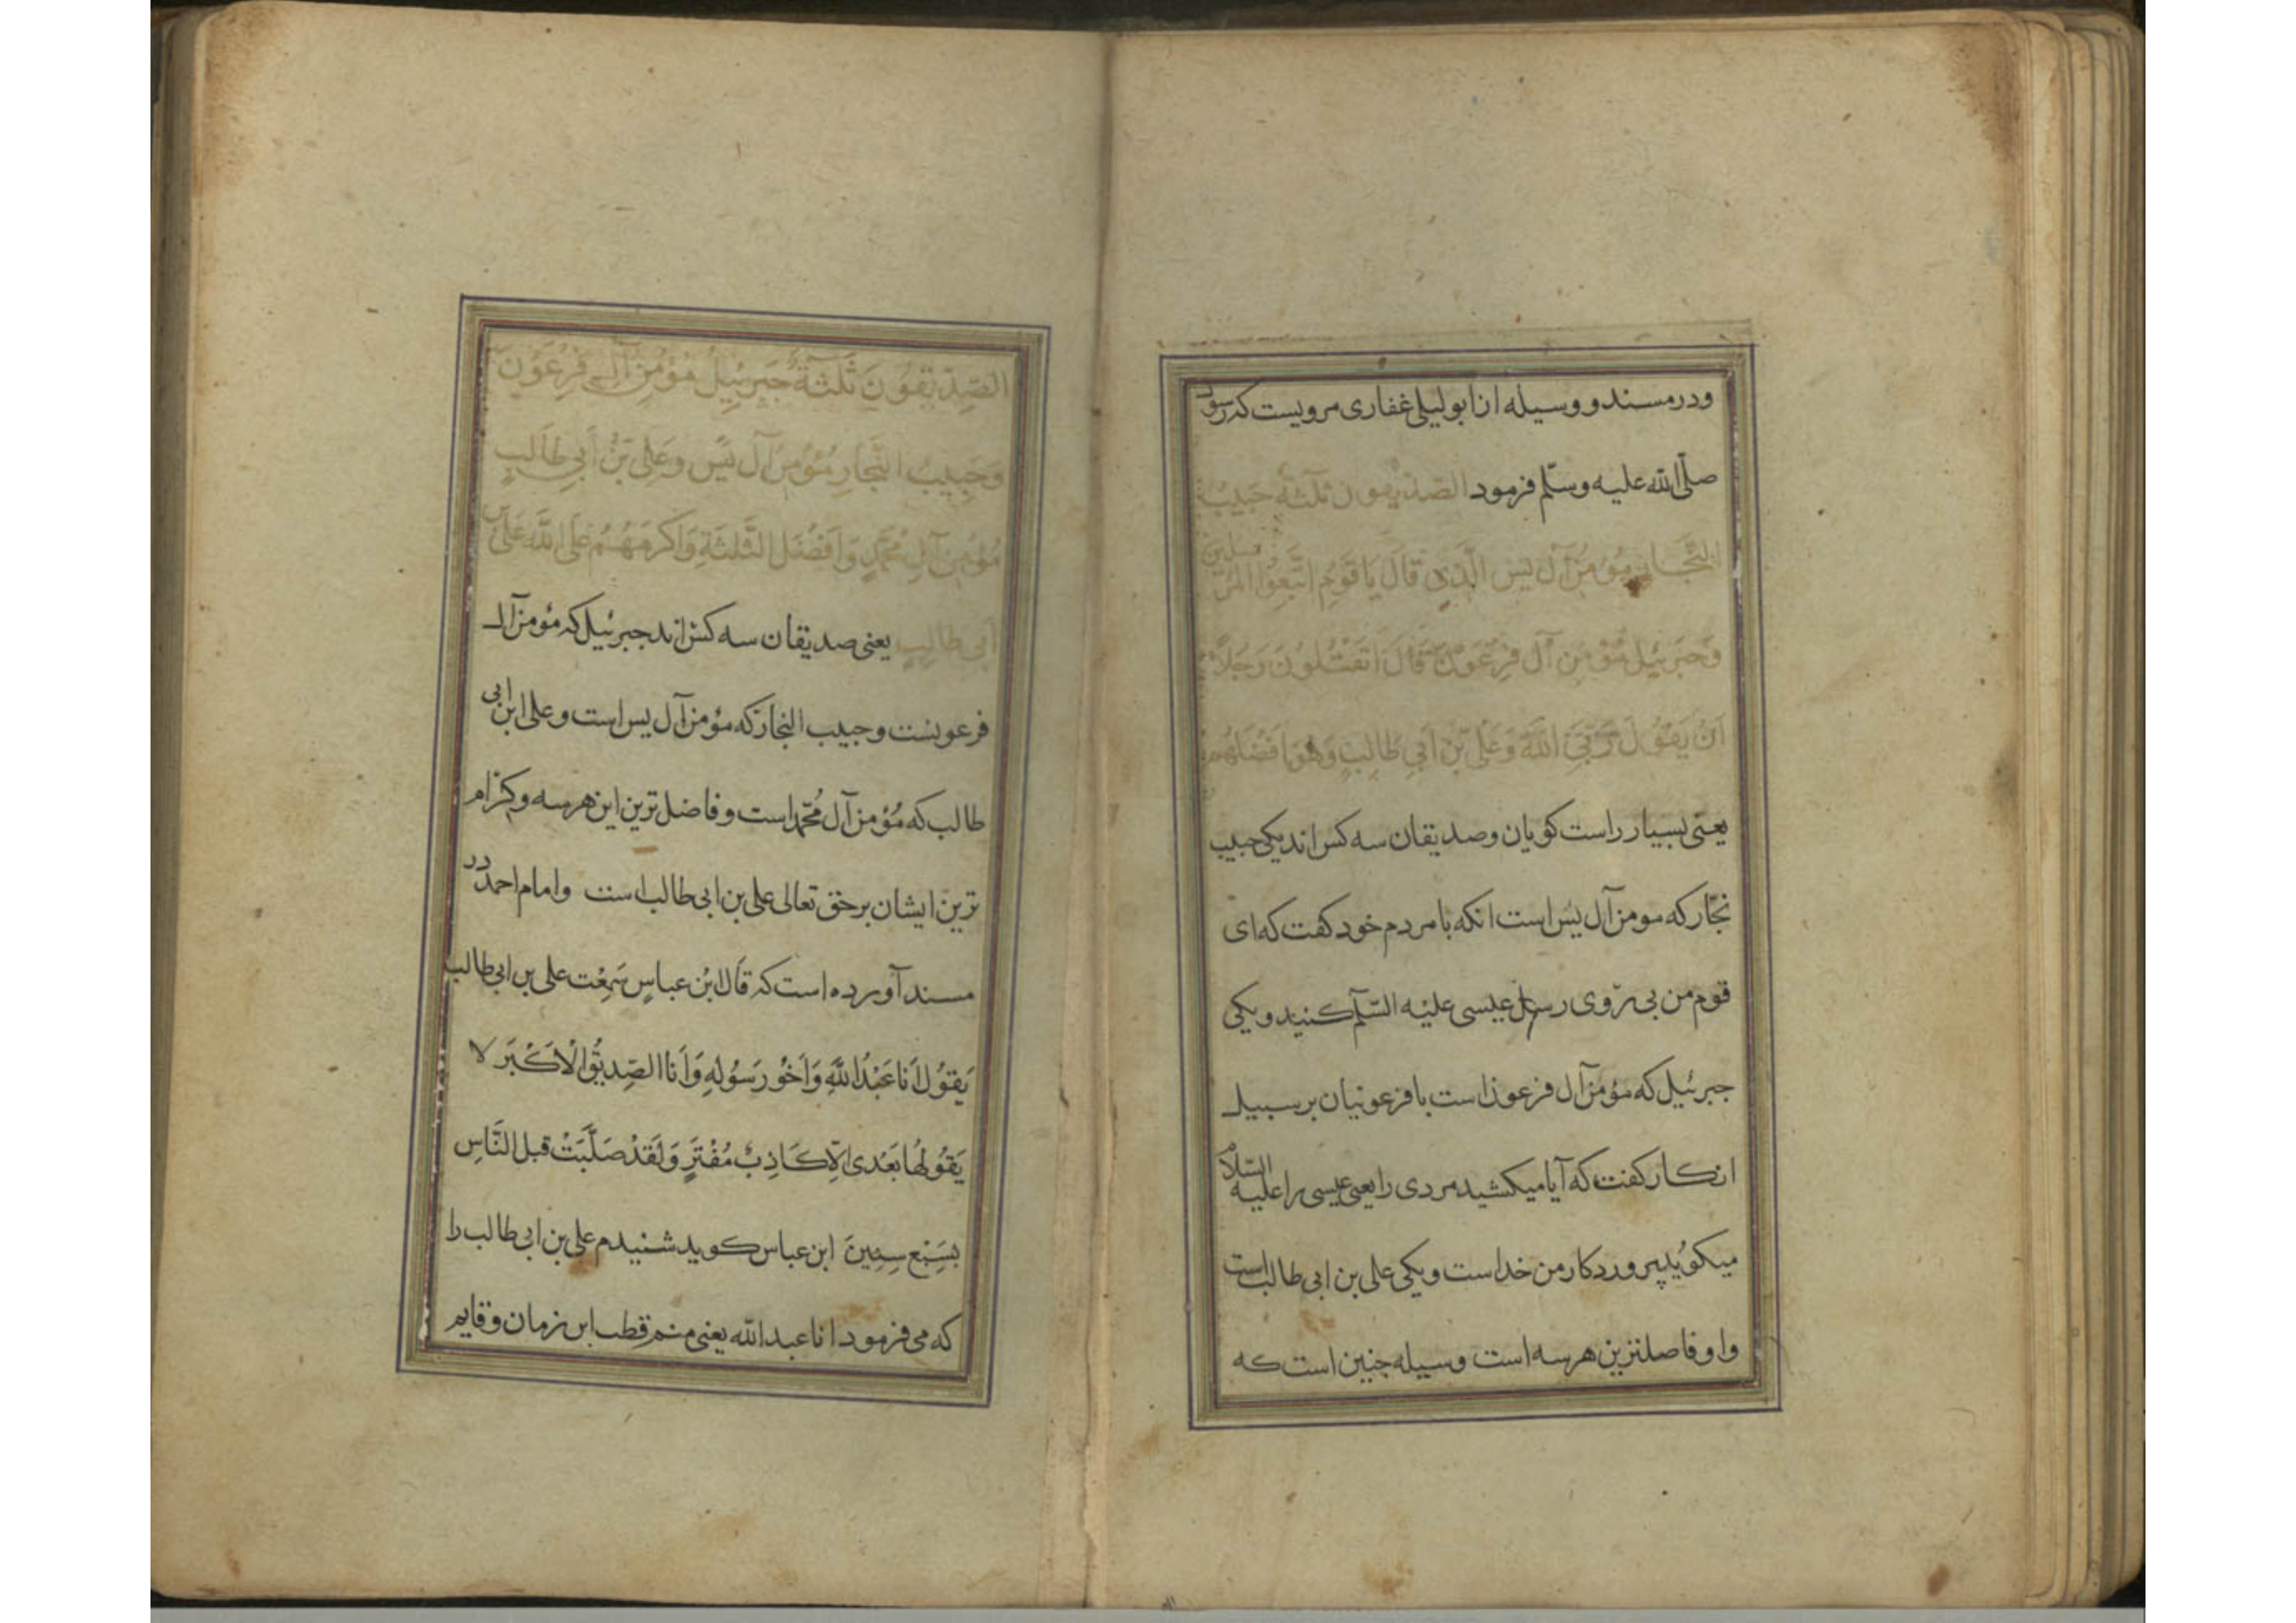 ودر مسند و وسیله از ابولیلی غفاری مرویست که رسول
صلّی الله علیه وسلّم فرمود الصدیقون ثلثة حبیب
النجار مؤمن آل یس الّذی قال یا قوم اتبعوا المرسلین
وجبرئیل مؤمن آل فرعون قال اتقتلون رجلاً
ان یقول ربّی الله وعلی بن ابی طالب وهو افضلهم
یعنی بسیار راست کویان وصدیقان سه کس اند یکی حبیب
نجّار که مومن آل یس است انکه با مردم خود کفت که ای
قوم من پی روی رسل عیسی علیه السّلم کنید ویکی
جبرئیل که مؤمن آل فرعون است با فرعونیان بر سبیل
انکار کفت که آیا میکشید مردی را یعنی عیسی را علیه السّلام
میکوید پروردکار من خداست ویکی علی بن ابی طالب است
واو فاصلترین هر سه است وسیله چنین است که
الصّدیقون ثلثة جبرئیل مؤمن آل فرعون
وحبیب النجار مؤمن آل یس وعلی بن ابی طالب
مؤمن آل محمّد وافضل الثّلثة واکرمهم علی الله علی بن
ابی طالب یعنی صدیقان سه کس اند جبرئیل که مؤمن آل
فرعونست وحبیب النجار که مؤمن آل یس است وعلی ابن ابی
طالب که مؤمن آل محمّد است وفاضل ترین این هر سه وکرام
ترین ایشان بر حق تعالی علی بن ابی طالب است وامام احمد در
مسند آورده است که قال ابن عباس سمعت علی بن ابی طالب
یقول انا عبد الله واخو رسوله وانا الصّدیق الاکبر لا
یقولها بعدی الّا کاذب مفتر ولقد صلّیت قبل النّاس
بسبع سنین ابن عباس کوید شنیدم علی بن ابی طالب را
که می فرمود انا عبد الله یعنی منم قطب این زمان وقایم